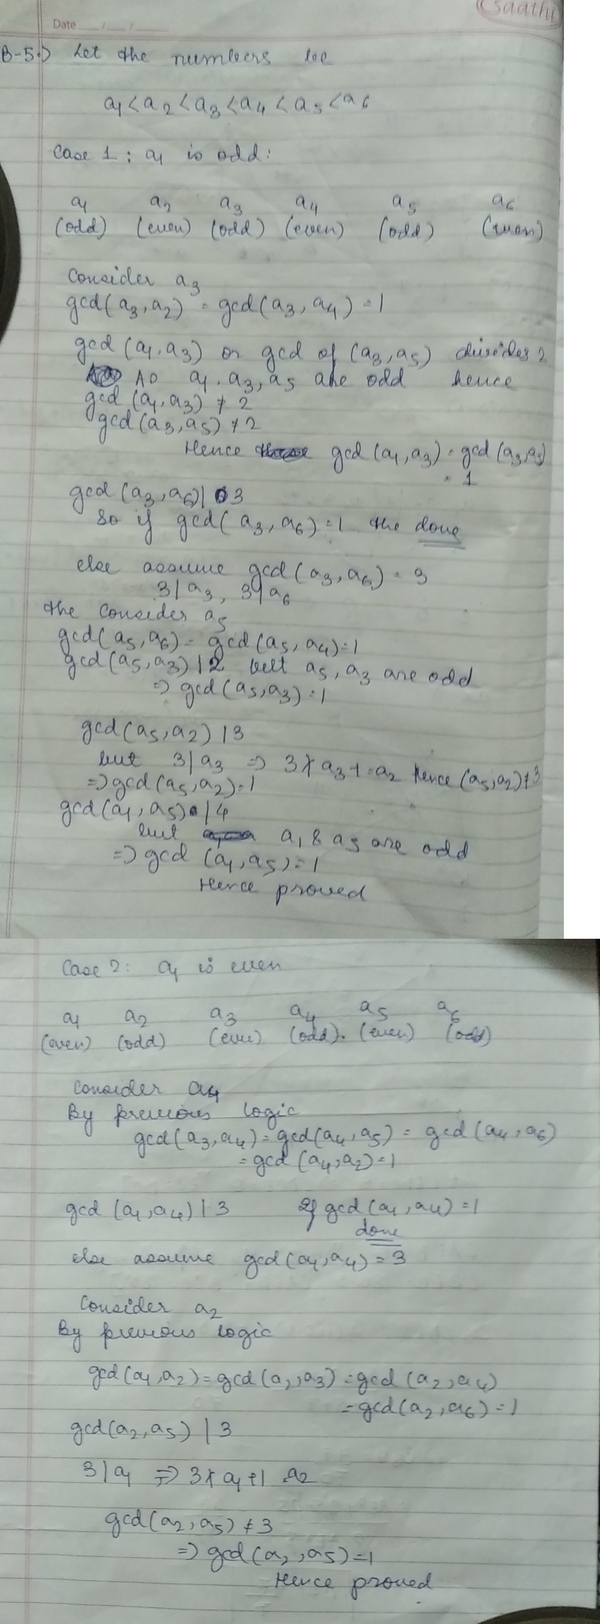 Saathi
Date __/__/__
B-5.) Let the numbers be
a1 < a2 < a3 < a4 < a5 < a6
Case 1 : a1 is odd :
a1 a2 a3 a4 a5 a6
(odd) (even) (odd) (even) (odd) (even)
Consider a3
gcd(a3, a2) = gcd(a3, a4) = 1
gcd (a1, a3) or gcd of (a3, a5) divides 2
As a1, a3, a5 are odd hence
gcd (a1, a3) ≠ 2
gcd(a3, a5) ≠ 2
Hence gcd(a1, a3) = gcd(a3, a5)
= 1
gcd(a3, a6) | 3
So if gcd(a3, a6) = 1 the done
else assume gcd(a3, a6) = 3
3|a3, 3|a6
the consider a5
gcd(a5, a6) = gcd(a5, a4) = 1
gcd(a5, a3) | 2 but a5, a3 are odd
=> gcd(a5, a3) = 1
gcd(a5, a2) | 3
but 3|a3 => 3∤a3+- = a2 hence (a5, a2) ≠ 3
=> gcd(a5, a2) = 1
gcd(a1, a5) | 4
but a1 & a5 are odd
=> gcd (a1, a5) = 1
Hence proved
Case 2: a1 is even
a1 a2 a3 a4 a5 a6
(even) (odd) (even) (odd). (even) (odd)
Consider a4
By previous logic
gcd(a3, a4) = gcd(a4, a5) = gcd(a4, a6)
= gcd(a4, a2) = 1
gcd (a1, a4) | 3 If gcd(a1, a4) = 1
done
else assume gcd(a1, a4) = 3
Consider a2
By previous logic
gcd(a1, a2) = gcd(a2, a3) = gcd (a2, a4)
= gcd(a2, a6) = 1
gcd(a2, a5) | 3
3|a1 => 3∤a1+1 = a2
gcd(a2, a5) ≠ 3
=> gcd(a2, a5) = 1
Hence proved